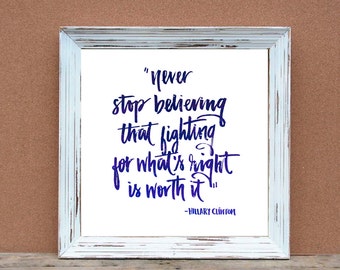 "never
stop believing
that fighting
for what's right
is worth it"
-HILLARY CLINTON